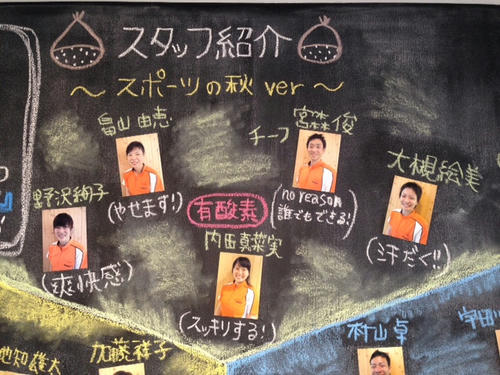 スタッフ紹介
～スポーツの秋ver～
畠山由恵
(やせます!)
チーフ
宮森俊
(no reason
誰でもできる!)
大槻絵美
(汗だく!!)
野沢絢子
(爽快感)
有酸素
内田真菜実
(スッキリする!)
加藤祥子
村山卓